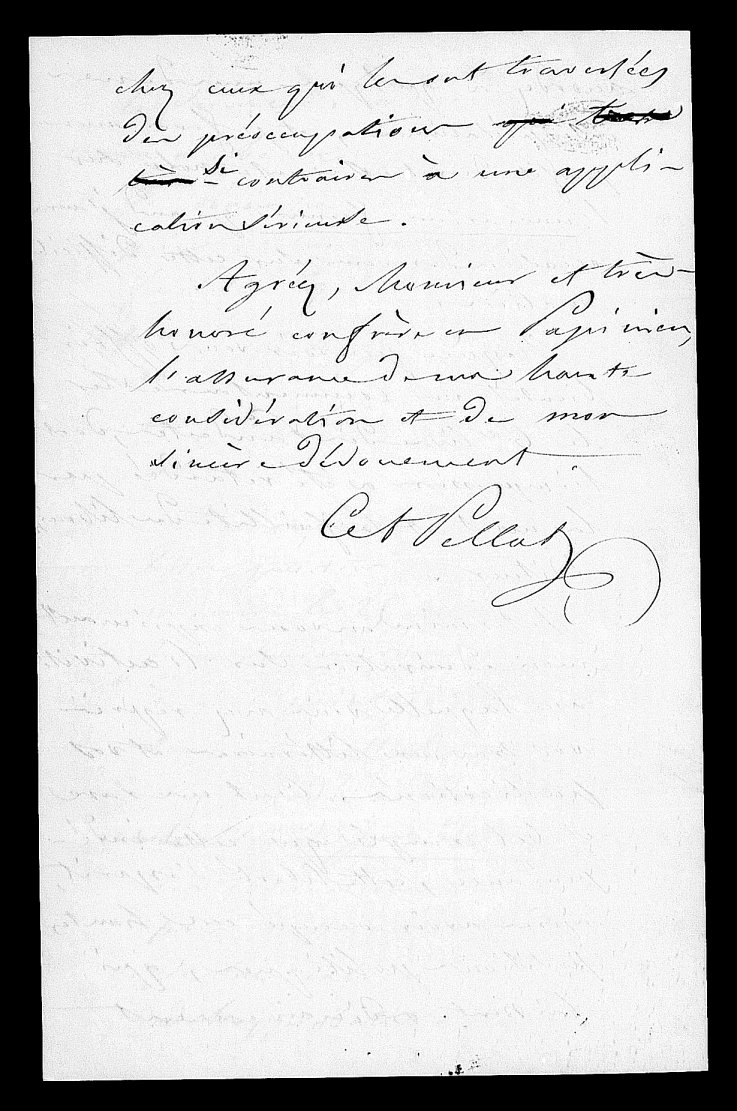 chez ceux qui les ont traversées
des préoccupations
si contraires à une appli-
cation sérieuse.
Agréez, Monsieur et très-
honoré confrère en Papinien,
l'assurance de ma haute
considération et de mon
sincère dévouement
Cet Pellat